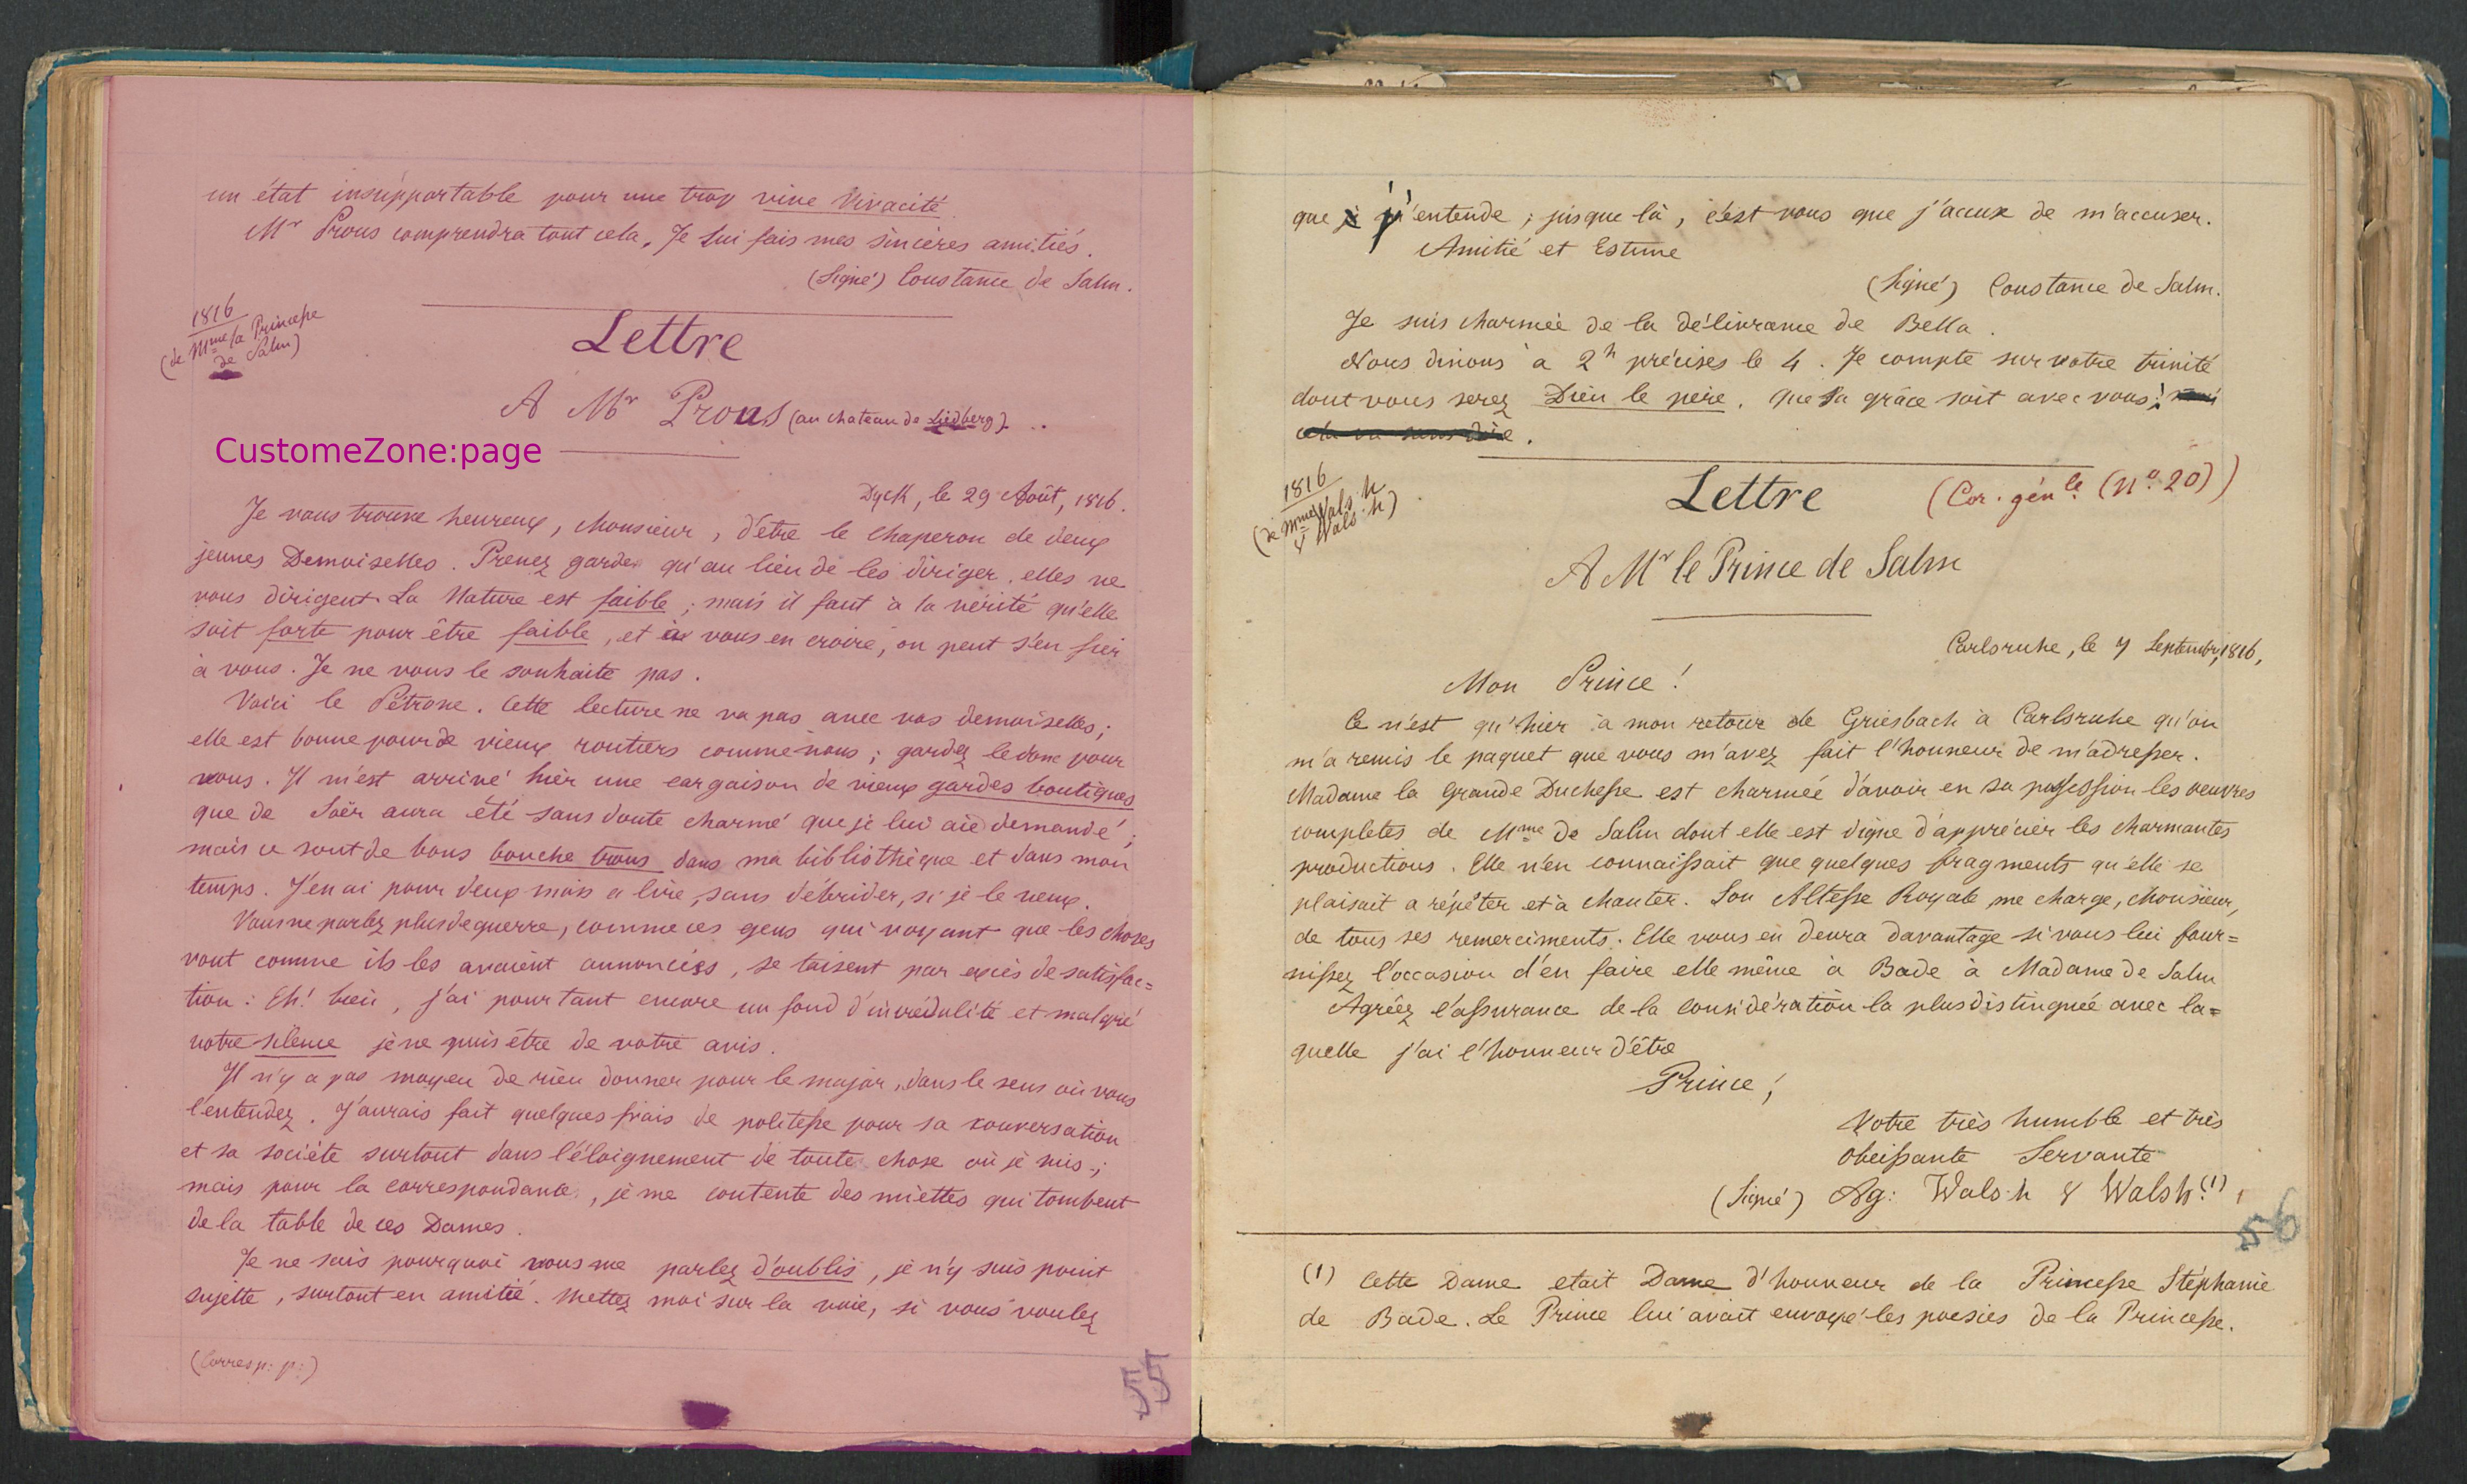 un état insupportable pour une trop vive vivacité.
Mr Prous comprendra tout cela. Je lui fais mes sincères amitiés.
(Signé) Constance de Salm.
1816
(de Mme la Princesse
de Salm)
Lettre
A Mr Prous (au chateau de Liedberg) ..
CustomeZone:page
Dyck, le 29 Août, 1816.
Je vous trouve heureux, Monsieur, d'être le chaperon de deux
jeunes Demoiselles. Prenez garde qu'au lieu de les diriger, elles ne
vous dirigent. La Nature est faible; mais il faut à la vérité qu'elle
soit forte pour être faible, et à vous en croire, on peut s'en fier
à vous. Je ne vous le souhaite pas.
Voici le Pétrone. Cette lecture ne va pas avec vos demoiselles;
elle est bonne pour de vieux routiers comme nous; gardez le donc pour
vous. Il m'est arrivé hier une cargaison de vieux gardes boutiques
que de Soër aura été sans doute charmé que je lui aie demandé;
mais ce sont de bons bouche trous dans ma bibliothèque et dans mon
temps. J'en ai pour deux mois a lire, sans débrider, si je le veux.
Vous ne parlez plus de guerre, comme ces gens qui voyant que les choses
vont comme ils les avaient annoncées, se taisent par excès de satisfac=
tion: Eh! bien, j'ai pourtant encore un fond d'incrédulité et malgré
votre silence je ne puis être de votre avis.
Il n'y a pas moyen de rien donner pour le major, dans le sens où vous
l'entendez. J'aurais fait quelques frais de politesse pour sa conversation
et sa société surtout dans l'éloignement de toute chose où je suis;
mais pour la correspondance, je me contente des miettes qui tombent
de la table de ces Dames.
Je ne sais pourquoi vous me parlez d'oublis, je n'y suis point
sujette, surtout en amitié. Mettez moi sur la voie, si vous voulez
(Corresp: p:)
55
que j'entende; jusque là, c'est vous que j'accuse de m'accuser.
Amitié et Estime
(Signé) Constance de Salm.
Je suis charmée de la délivrance de Bella.
Nous dinons à 2h précises le 4. Je compte sur votre trinité
dont vous serez Dieu le père. Que sa grâce soit avec vous!
cela va sans dire.
1816
(de Mme Wals.h
& Wals.h)
Lettre (Cor. génle (No. 20))
A Mr le Prince de Salm
Carlsruhe, le 7 Septembre, 1816,
Mon Prince!
Ce n'est qu'hier à mon retour de Griesbach à Carlsruhe qu'on
m'a remis le paquet que vous m'avez fait l'honneur de m'adresser.
Madame la Grande Duchesse est charmée d'avoir en sa possession les oeuvres
completes de Mme de Salm dont elle est digne d'apprécier les charmantes
productions. Elle n'en connaissait que quelques fragments qu'elle se
plaisait a répéter et à chanter. Son Altesse Royale me charge, Monsieur,
de tous ses remerciments. Elle vous en devra davantage si vous lui four=
nissez l'occasion d'en faire elle même à Bade à Madame de Salm
Agréez l'assurance de la considération la plus distinguée avec la=
quelle j'ai l'honneur d'être
Prince!
Votre très humble et très
obeissante Servante
(Signé) Ag: Wals.h & Walsh (1)
56
(1) Cette Dame etait Dame d'honneur de la Princesse Stéphanie
de Bade. Le Prince lui avait envoyé les poesies de la Princesse.